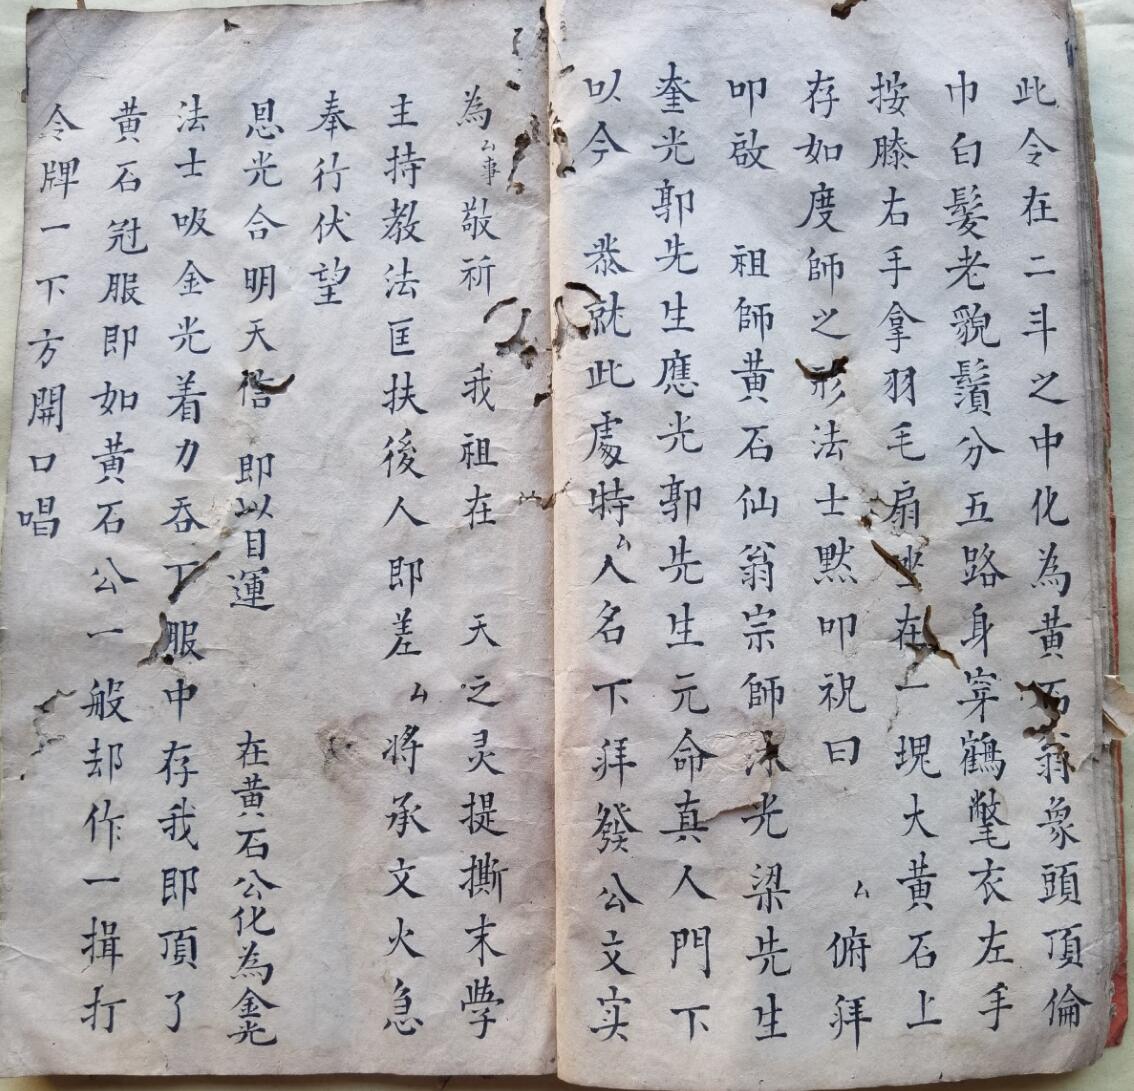 此令在二斗之中化為黄石翁象頭頂倫
巾白髮老貌鬚分五路身穿鶴氅衣左手
按膝右手拿羽毛扇坐在一塊大黄石上
存如度師之形法士默叩祝曰 厶俯拜
叩啟 祖師黄石仙翁宗師 光梁先生
奎光郭先生應光郭先生元命真人門下
以今 恭就此處特厶人名下拜發公文实
為厶事敬祈 我祖在 天之灵提撕末學
主持教法匡扶後人即差厶将承文火急
奉行伏望
恩光合明天 即以目運 在黄石公化為金光
法士吸金光着力吞丁服中存我即頂了
黄石冠服即如黄石公一般却作一揖打
令牌一下方開口唱